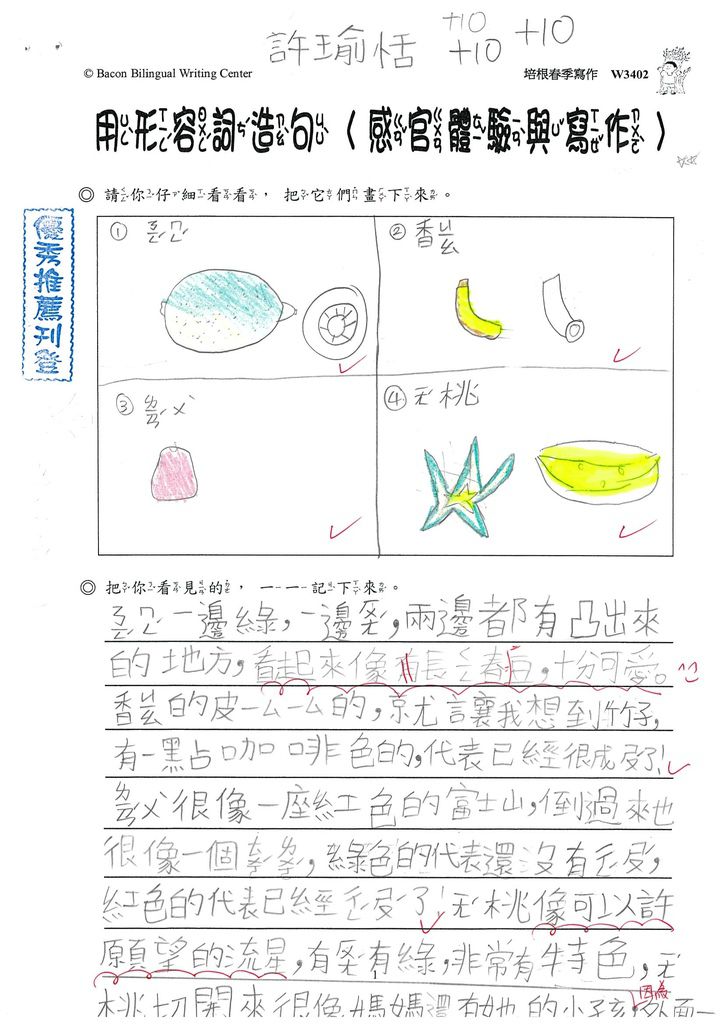 許瑜恬 +10 +10 +10
© Bacon Bilingual Writing Center 培根春季寫作 W3402
用形容詞造句〈感官體驗與寫作〉
◎ 請你仔細看看，把它們畫下來。
優秀推薦刊登
① ② 香ㄐㄧㄠ
③ ㄌㄧㄢˊㄨˋ ④ ㄧㄤˊ桃
◎ 把你看見的，一一記下來。
一邊綠，一邊黃，兩邊都有凸出來
的地方，看起來像長春，十分可愛。
香ㄐㄧㄠ的皮一ㄙ一ㄙ的，就讓我想到竹子，
有一點咖啡色的，代表已經很成受了！
ㄌㄧㄢˊㄨˋ很像一座紅色的富士山，倒過來也
很像一個，綠色的代表還沒有受，
紅色的代表已經受了！桃像可以許
願望的流星，有有綠，非常有特色，
桃切開來很像媽媽還有她的小孩，因為外面一